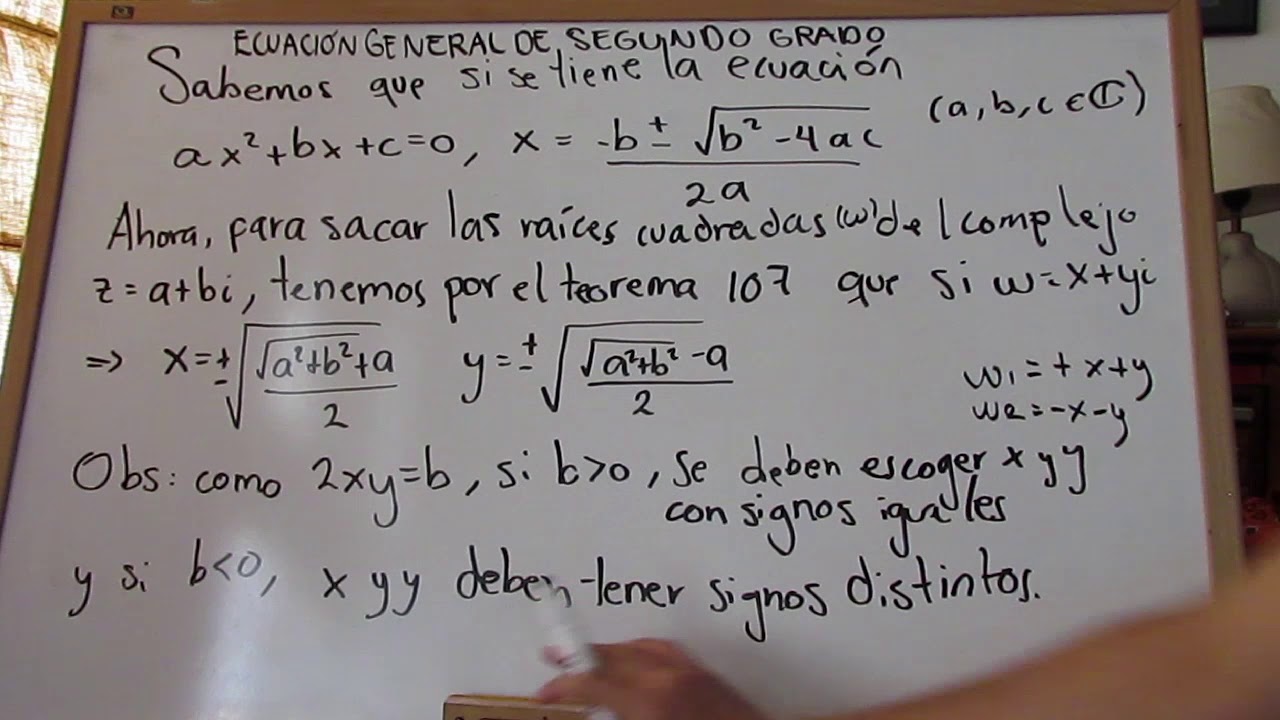 ECUACIÓN GENERAL DE SEGUNDO GRADO
Sabemos que si se tiene la ecuación
(a, b, c ∈ ℂ)
ax² + bx + c = 0, x = -b ± √(b² - 4ac) / 2a
Ahora, para sacar las raíces cuadradas (w) del complejo
z = a + bi, tenemos por el teorema 107 que si w = x + yi
⇒ x = ± √((√(a² + b²) + a) / 2) y = ± √((√(a² + b²) - a) / 2)
w₁ = + x + y
w₂ = - x - y
Obs: como 2xy = b, si b > 0, se deben escoger x y y
con signos iguales
y si b < 0, x y y deben tener signos distintos.